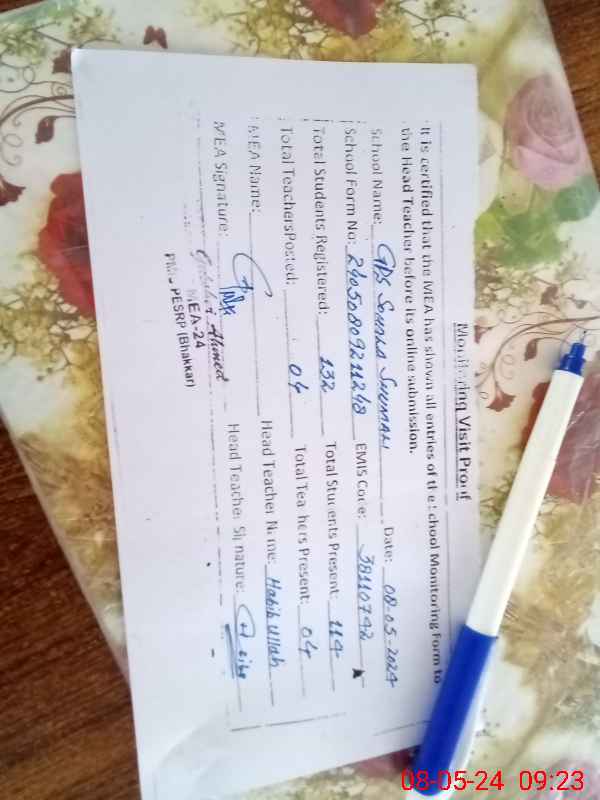 Monitoring Visit Proof
It is certified that the MEA has shown all entries of the School Monitoring Form to
the Head Teacher before its online submission.
School Name: GPS Somala Shumali Date: 08-05-2024
School Form No: 24050809211248 EMIS Code: 38110742
Total Students Registered: 132 Total Students Present: 114
Total Teachers Posted: 04 Total Teachers Present: 04
MEA Name: Head Teacher Name: Habib ullah
MEA Signature: Head Teacher Signature:
Ahmed
MEA-24
PMU- PESRP (Bhakkar)
08-05-24 09:23